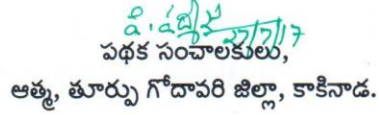 27/7/17
పథక సంచాలకులు,
ఆత్మ, తూర్పు గోదావరి జిల్లా, కాకినాడ.